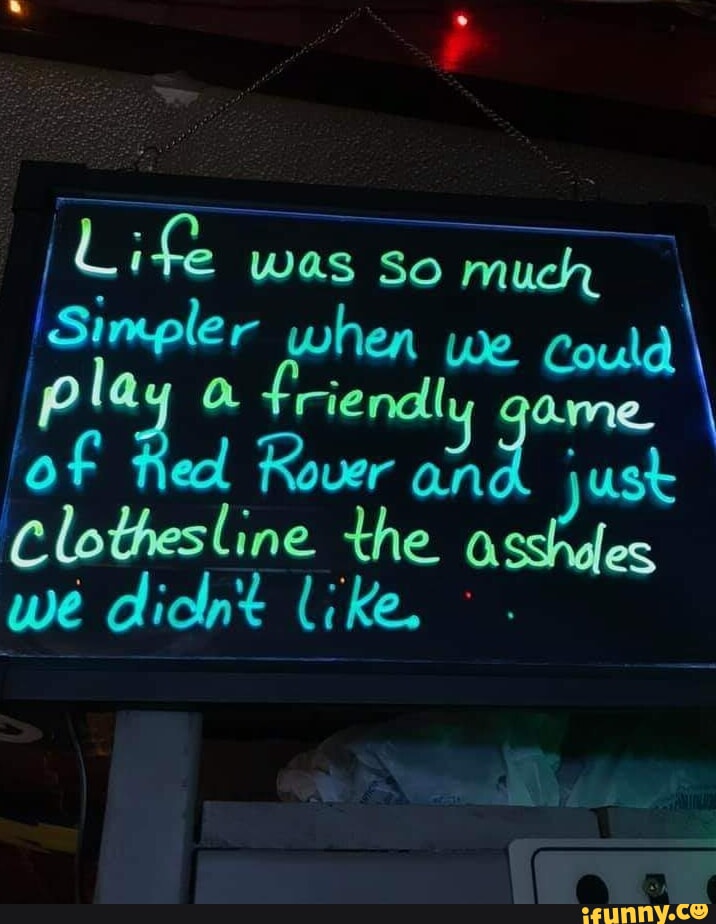 Life was so much
simpler when we could
play a friendly game
of Red Rover and just
clothesline the assholes
we didn't like.
ifunny.co